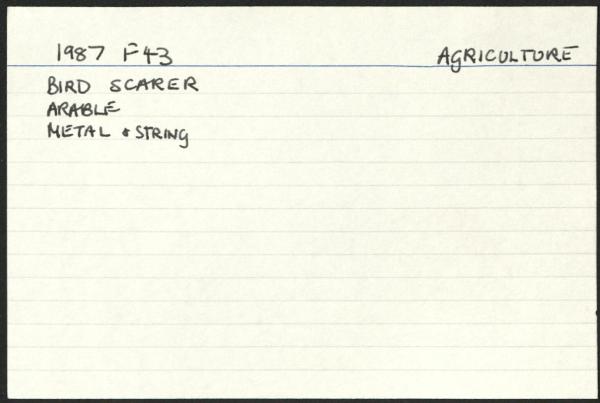 1987 F43 AGRICULTURE
BIRD SCARER
ARABLE
METAL & STRING